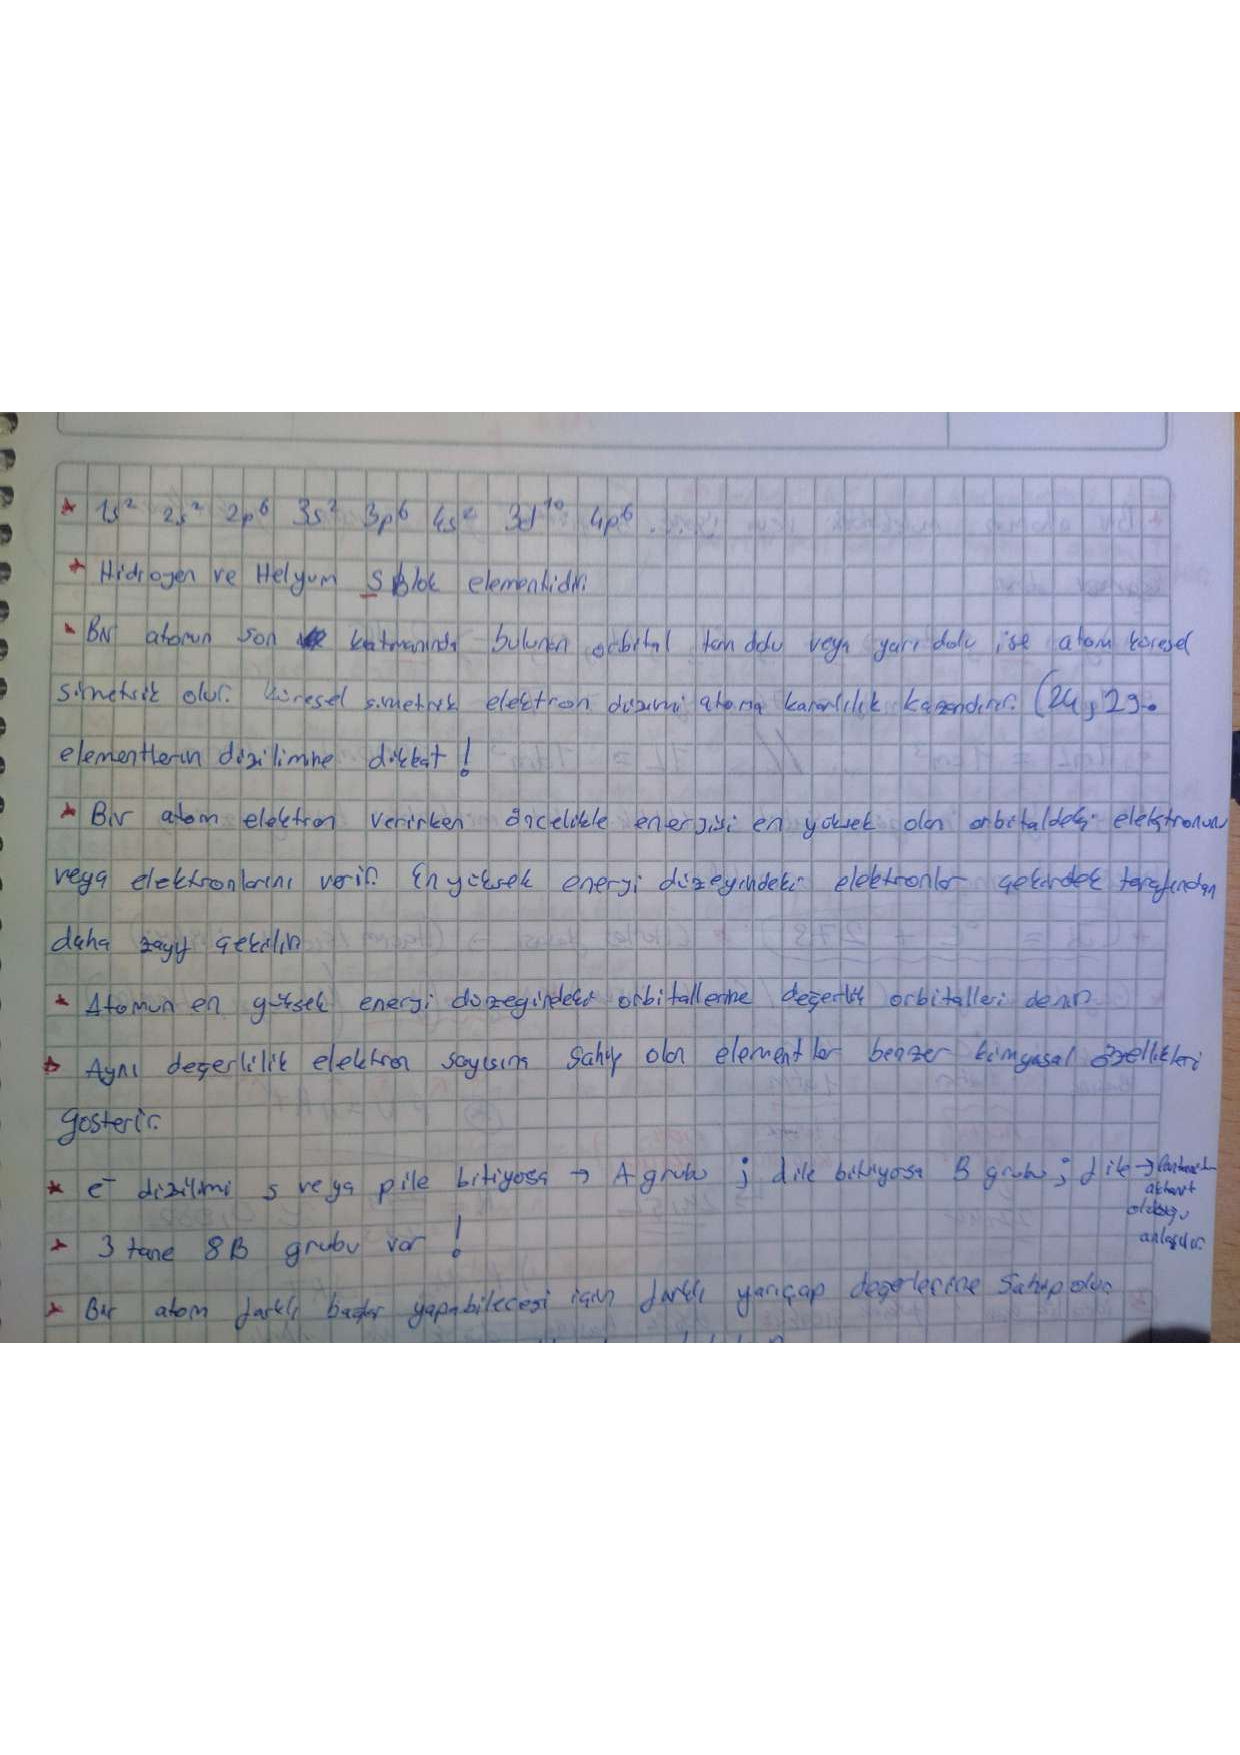 * 1s² 2s² 2p⁶ 3s² 3p⁶ 4s² 3d¹⁰ 4p⁶
* Hidrojen ve Helyum s Blok elementidir.
* Bir atomun son katmanında bulunan orbital tam dolu veya yarı dolu ise atom küresel
simetrik olur. Küresel simetrik elektron düzeni atoma kararlılık kazandırır. (24, 29.
elementlerin dizilimine dikkat !
* Bir atom elektron verirken öncelikle enerjisi en yüksek olan orbitaldeki elektronunu
veya elektronlarını verir. En yüksek enerji düzeyindeki elektronlar çekirdek tarafından
daha zayıf çekilir.
* Atomun en yüksek enerji düzeyindeki orbitallerine değerlik orbitalleri denir.
* Aynı değerlilik elektron sayısına sahip olan elementler benzer kimyasal özellikleri
gösterir.
* e⁻ dizilimi s veya p ile bitiyosa → A grubu ; d ile bitiyosa B grubu ; f ile →
olduğu
anlaşılır.
* 3 tane 8B grubu var !
* Bir atom farklı bağlar yapabileceği için farklı yarıçap değerlerine sahip olur.